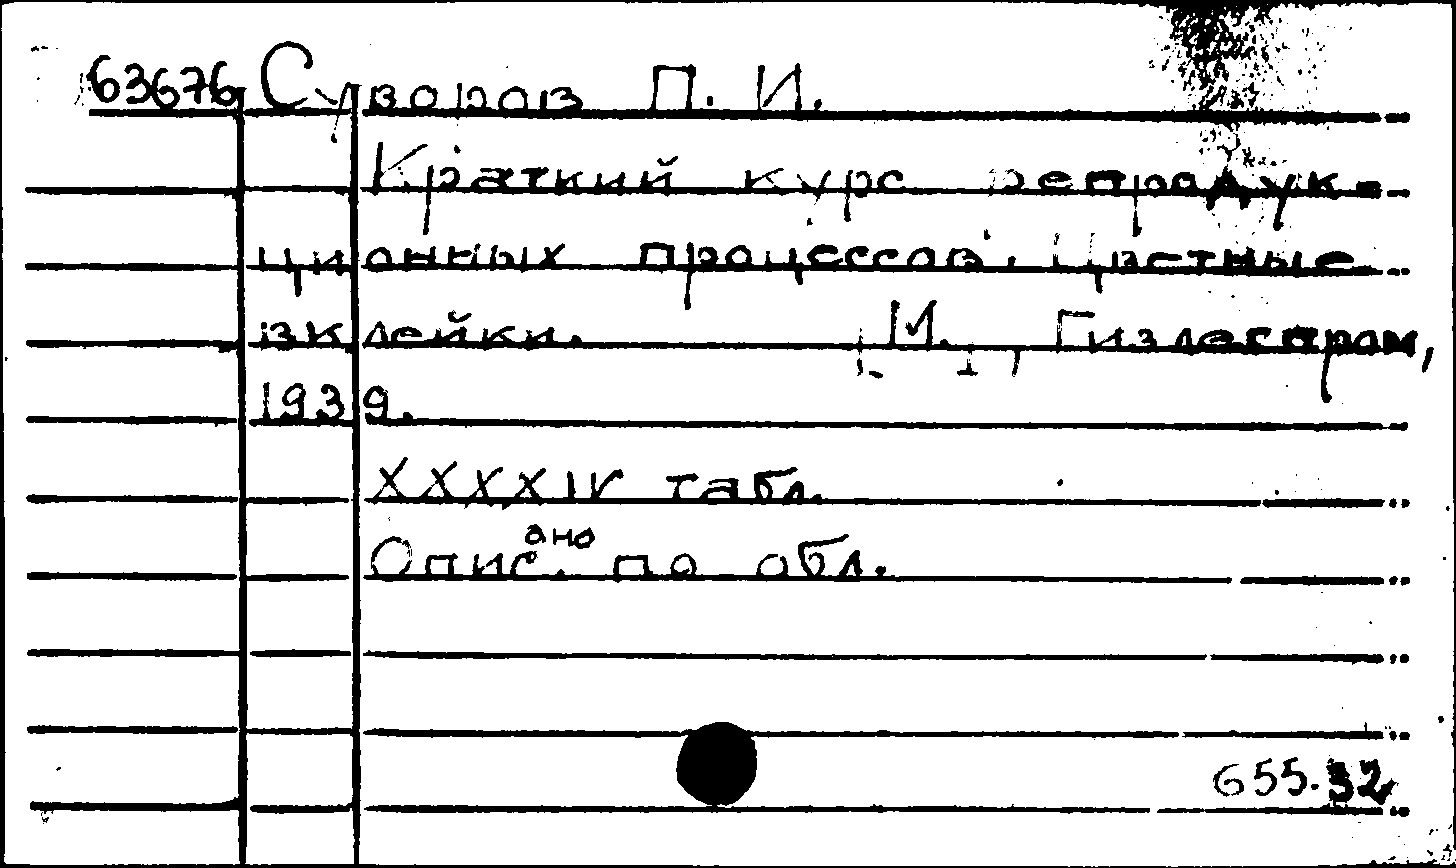 63676 Суворов П. И.
Краткий курс репродук-
ционных процессов. Цветные
вклейки. [М.], Гизлегпром,
1939.
XXXXIV табл.
Описано по обл.
655.32